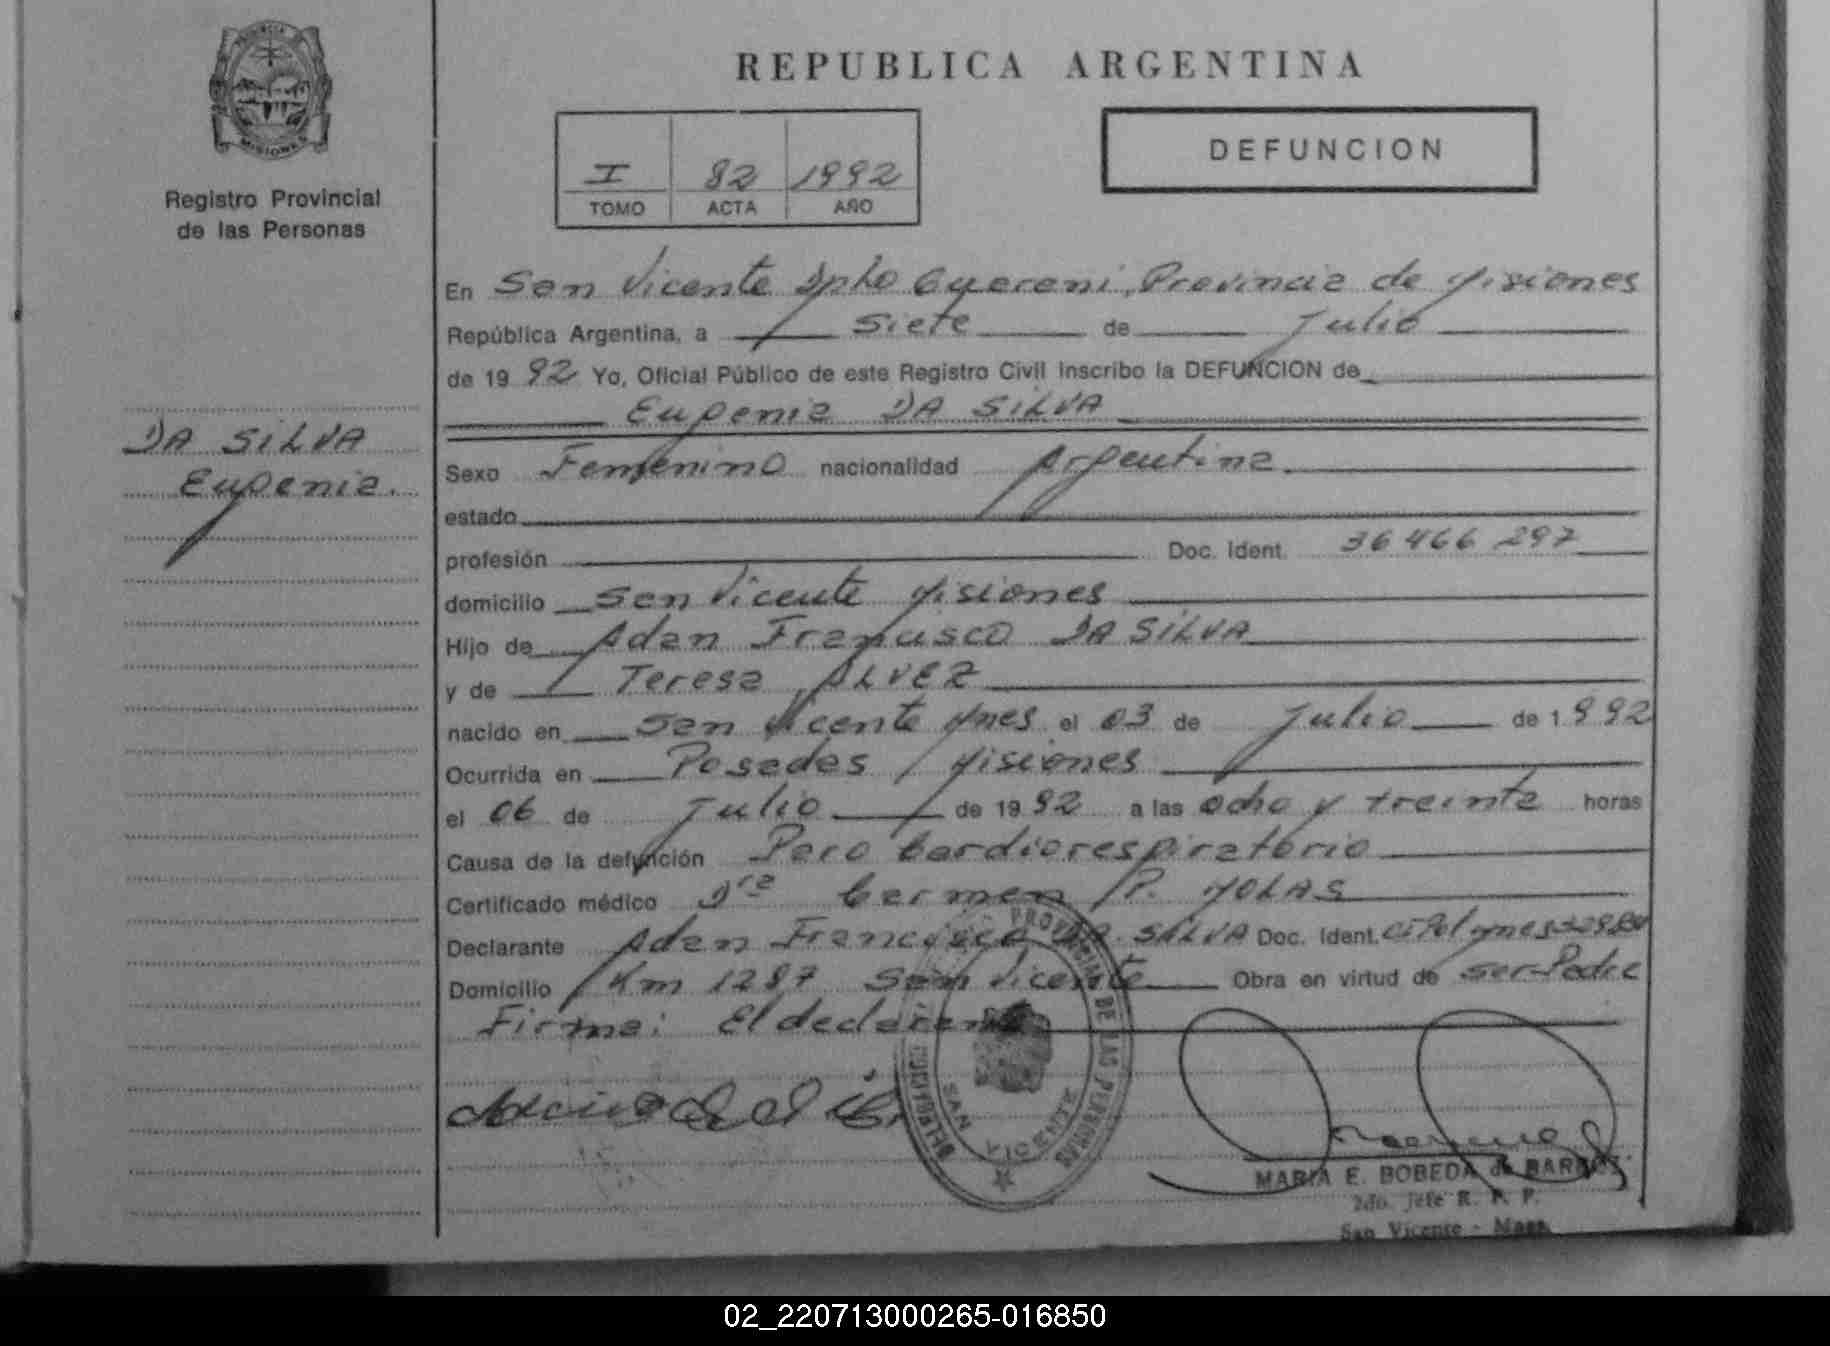 PROVINCIA
MISIONES
Registro Provincial
de las Personas
DA SILVA
Eugenia.
REPUBLICA ARGENTINA
I 82 1992
TOMO ACTA AÑO
DEFUNCION
En San Vicente Dpto Guarani, Provincia de Misiones
República Argentina, a Siete de Julio
de 1992 Yo, Oficial Público de este Registro Civil inscribo la DEFUNCION de
Eugenia DA SILVA
Sexo Femenino nacionalidad Argentina.
estado
profesión Doc. Ident. 36 466 297
domicilio San Vicente Misiones
Hijo de Adan Francisco DA SILVA
y de Teresa ALVEZ
nacido en San Vicente Mnes el 03 de Julio de 1992
Ocurrida en Posadas, Misiones
el 06 de Julio de 1992 a las ocho y treinta horas
Causa de la defunción Paro Cardiorespiratorio
Certificado médico Dra Carmen P. MOLAS
Declarante Adan Francisco DA SILVA Doc. Ident. CiPol Mnes
Domicilio Km 1287 San Vicente Obra en virtud de ser Padre
Firma: El declarante
PROVINCIAL DE LAS PERSONAS
SAN VICENTE
MARIA E. BOBEDA de
2do. Jefe R. P. P.
San Vicente - Mnes.
02_220713000265-016850